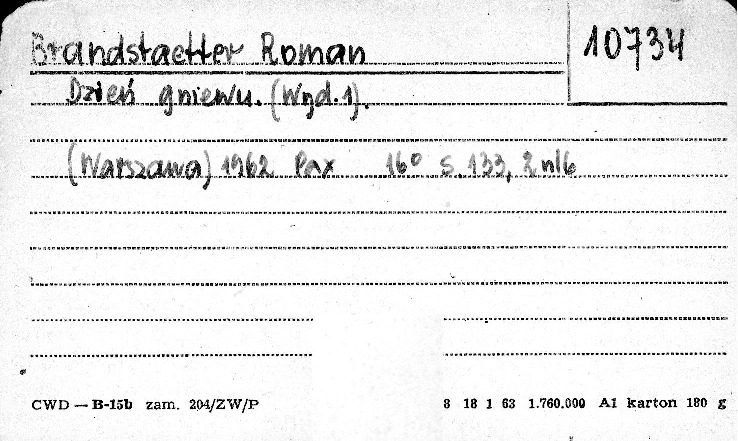 Brandstaetter Roman
10734
Dzień gniewu. (Wyd. 1).
(Warszawa) 1962 Pax 16° s. 133, 2 nlb
CWD — B-15b zam. 204/ZW/P
8 18 1 63 1.760.000 A1 karton 180 g